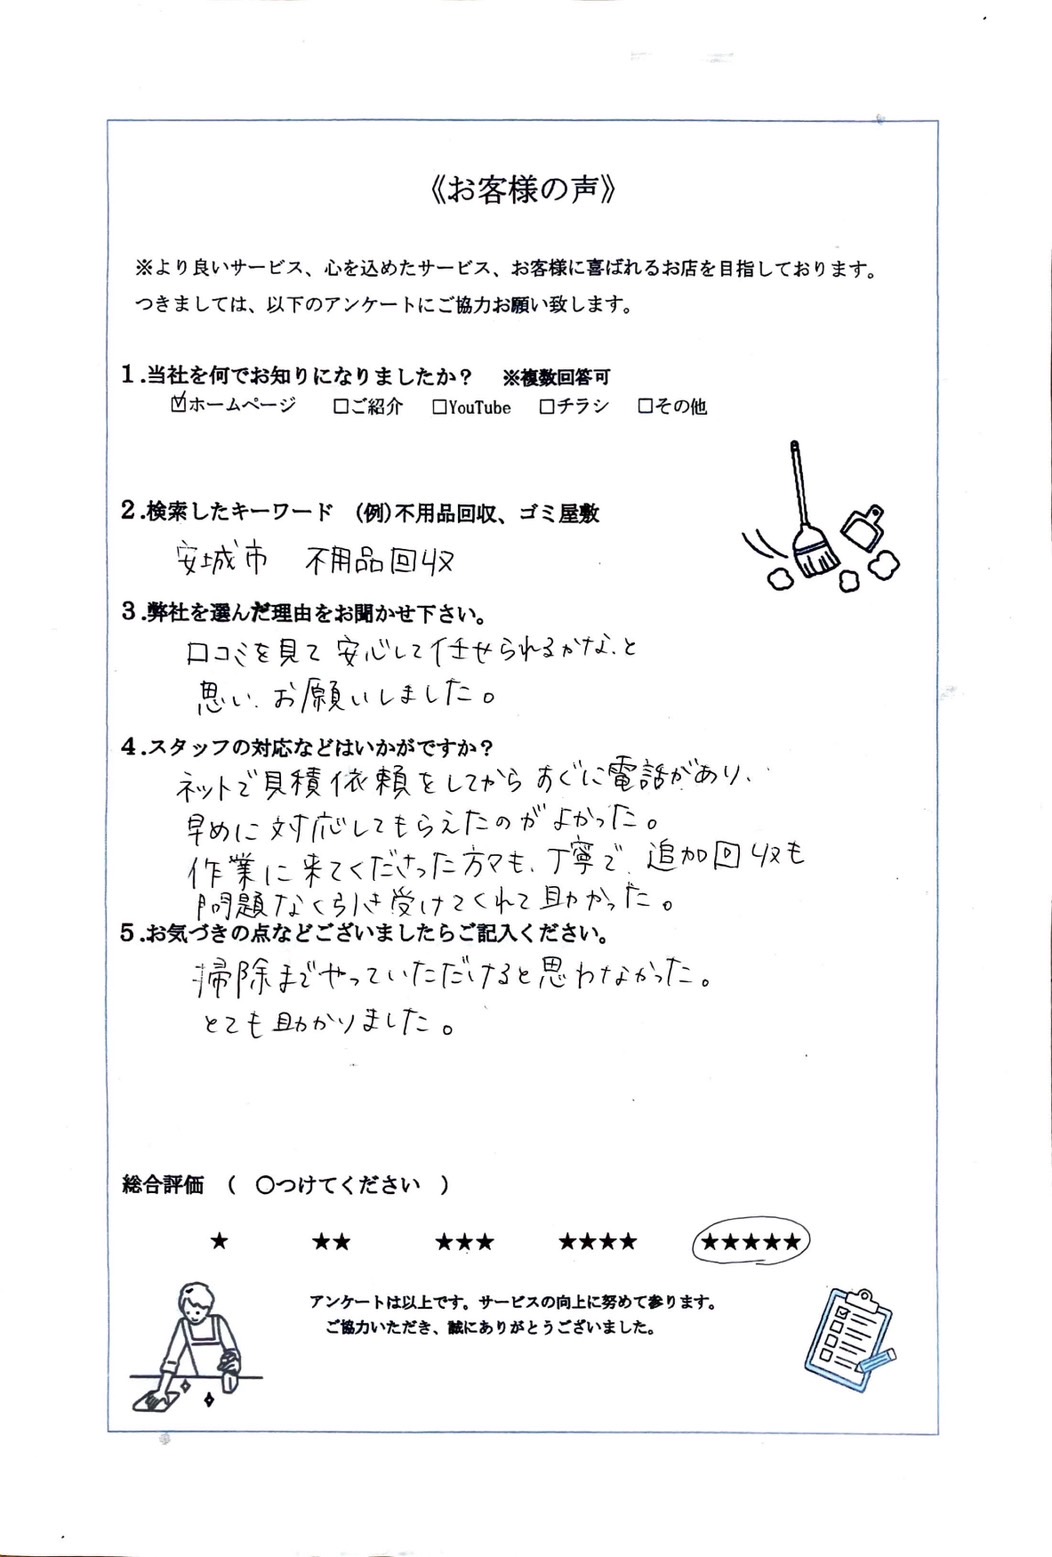 《お客様の声》
※より良いサービス、心を込めたサービス、お客様に喜ばれるお店を目指しております。
つきましては、以下のアンケートにご協力お願い致します。
1.当社を何でお知りになりましたか？ ※複数回答可
☑ホームページ □ご紹介 □YouTube □チラシ □その他
2.検索したキーワード (例)不用品回収、ゴミ屋敷
安城市 不用品回収
3.弊社を選んだ理由をお聞かせ下さい。
口コミを見て安心して任せられるかな、と
思い、お願いしました。
4.スタッフの対応などはいかがですか？
ネットで見積依頼をしてからすぐに電話があり、
早めに対応してもらえたのがよかった。
作業に来てくださった方々も、丁寧で、追加回収も
問題なく引き受けてくれて助かった。
5.お気づきの点などございましたらご記入ください。
掃除までやっていただけると思わなかった。
とても助かりました。
総合評価 （ ○つけてください ）
★ ★★ ★★★ ★★★★ ★★★★★
アンケートは以上です。サービスの向上に努めて参ります。
ご協力いただき、誠にありがとうございました。